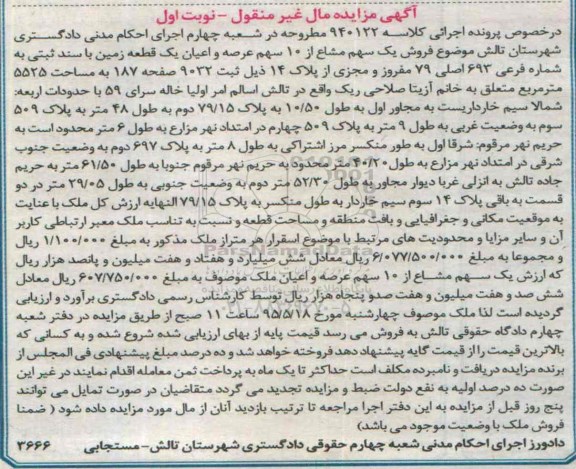 آگهی مزایده مال غیر منقول – نوبت اول
درخصوص پرونده اجرائی کلاسه ۹۴۰۱۲۲ مطروحه در شعبه چهارم اجرای احکام مدنی دادگستری
شهرستان تالش موضوع فروش یک سهم مشاع از ۱۰ سهم عرصه و اعیان یک قطعه زمین با سند ثبتی به
شماره فرعی ۶۹۳ اصلی ۷۹ مفروز و مجزی از پلاک ۱۴ ذیل ثبت ۹۰۳۲ صفحه ۱۸۷ به مساحت ۵۵۲۵
مترمربع متعلق به خانم آزیتا صلاحی ریک واقع در تالش اسالم امر اولیا خاله سرای ۵۹ با حدودات اربعه:
شمالا سیم خارداریست به مجاور اول به طول ۱۰/۵۰ به پلاک ۷۹/۱۵ دوم به طول ۴۸ متر به پلاک ۵۰۹
سوم به وضعیت غربی به طول ۹ متر به پلاک ۵۰۹ چهارم در امتداد نهر مزارع به طول ۶ متر محدود است به
حریم نهر مرقوم: شرقا اول به طور منکسر مرز اشتراکی به طول ۸ متر به پلاک ۶۹۷ دوم به وضعیت جنوب
شرقی در امتداد نهر مزارع به طول ۴۰/۲۰ متر محدود به حریم نهر مرقوم جنوبا به طول ۶۱/۵۰ متر به حریم
جاده تالش به انزلی غربا دیوار مجاور به طول ۵۲/۳۰ متر دوم به وضعیت جنوبی به طول ۲۹/۰۵ متر در دو
قسمت به باقی پلاک ۱۴ سوم سیم خاردار به طول منکسر به پلاک ۷۹/۱۵ النهایه ارزش کل ملک با عنایت
به موقعیت مکانی و جغرافیایی و بافت منطقه و مساحت قطعه و نسبت به تناسب ملک معبر ارتباطی کاربر
آن و سایر مزایا و محدودیت های مرتبط با موضوع اسقرار هر متراز ملک مذکور به مبلغ ۱/۱۰۰/۰۰۰ ریال
و مجموعا به مبلغ ۶/۰۷۷/۵۰۰/۰۰۰ ریال معادل شش میلیارد و هفتاد و هفت میلیون و پانصد هزار ریال
که ارزش یک سهم مشاع از ۱۰ سهم عرصه و اعیان ملک موصوف به مبلغ ۶۰۷/۷۵۰/۰۰۰ ریال معادل
شش صد و هفت میلیون و هفت صدو پنجاه هزار ریال توسط کارشناس رسمی دادگستری برآورد و ارزیابی
گردیده است لذا ملک موصوف چهارشنبه مورخ ۹۵/۵/۱۸ ساعت ۱۱ صبح از طریق مزایده در دفتر شعبه
چهارم دادگاه حقوقی تالش به فروش می رسد قیمت پایه از بهای ارزیابی شده شروع شده و به کسانی که
بالاترین قیمت را از قیمت گایه پیشنهاد دهد فروخته خواهد شد و ده درصد مبلغ پیشنهادی فی المجلس از
برنده مزایده دریافت و نامبرده مکلف است حداکثر تا یک ماه به پرداخت ثمن معامله اقدام نمایند در غیر این
صورت ده درصد اولیه به نفع دولت ضبط و مزایده تجدید می گردد متقاضیان در صورت تمایل می توانند
پنج روز قبل از مزایده به این دفتر اجرا مراجعه تا ترتیب بازدید آنان از مال مورد مزایده داده شود ( ضمنا
فروش ملک با وضعیت موجود می باشد)
دادورز اجرای احکام مدنی شعبه چهارم حقوقی دادگستری شهرستان تالش– مستجابی ۳۶۶۶